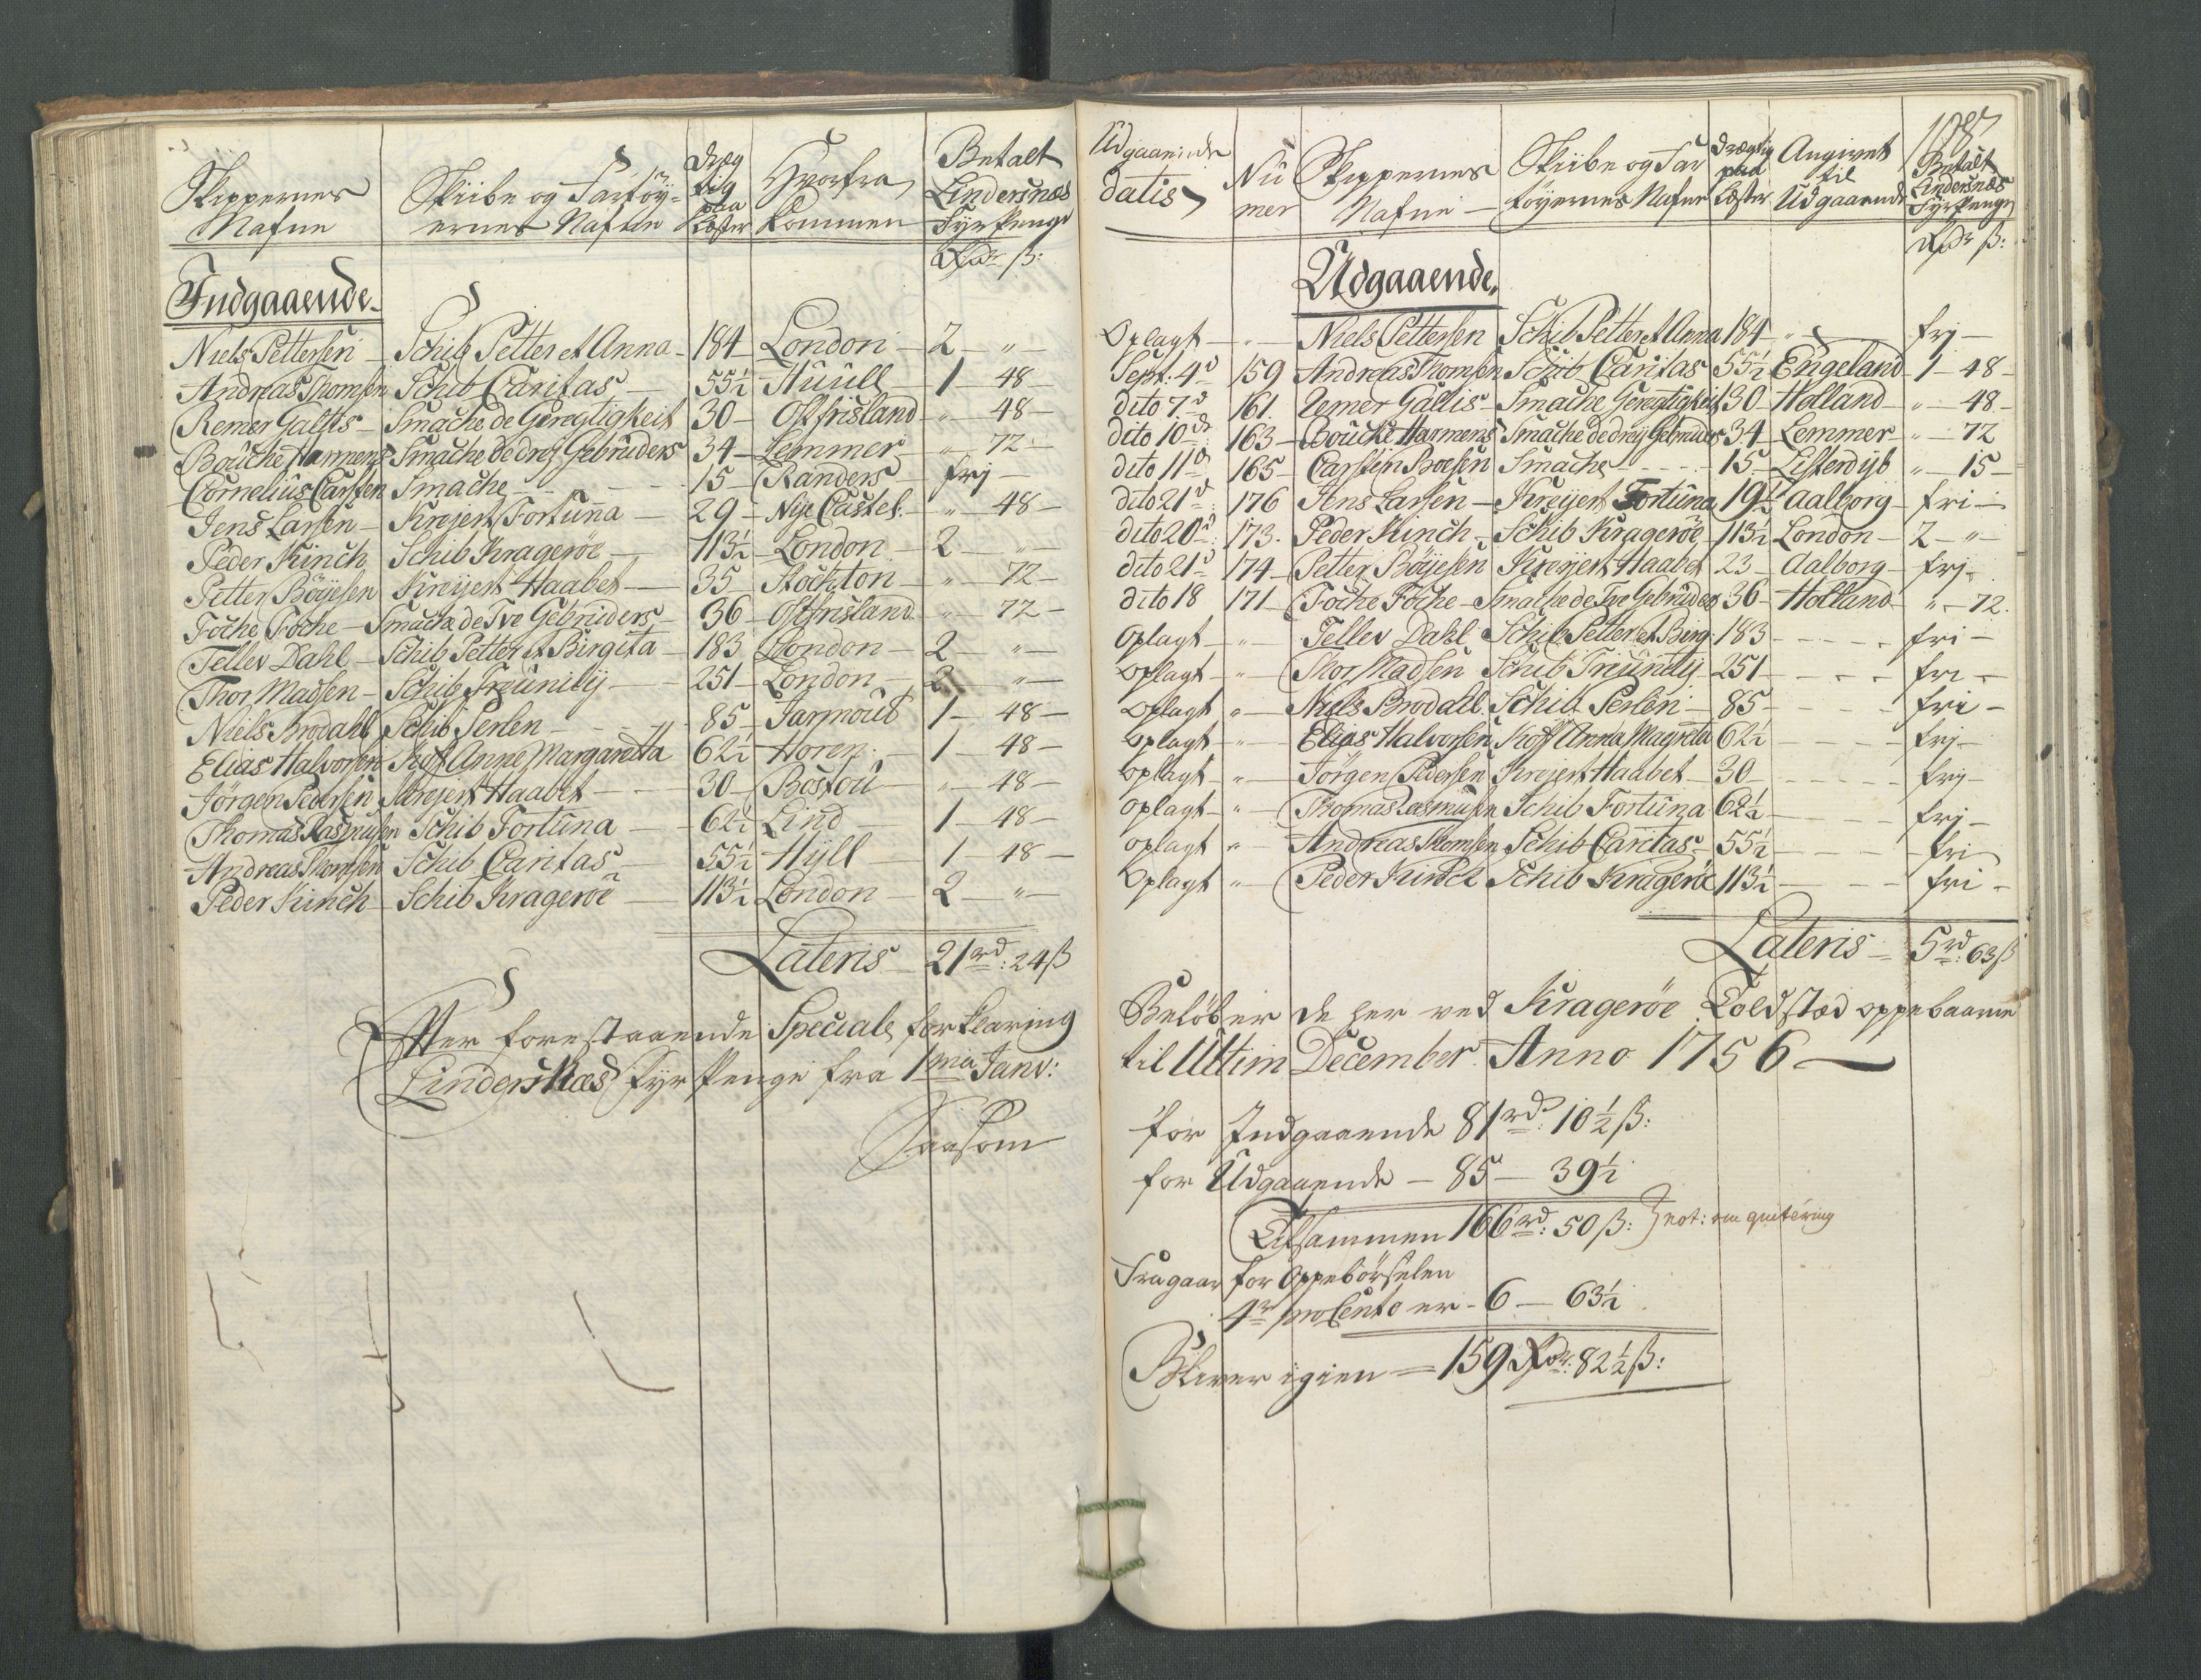 Skippernes Nafne | Skibe og Fartøy-ernes Nafne | Dræg tig paa Læster | Hvorfra kommen | Betalt Lindersnæs Fyrpenge
Rdr ß:
Indgaaende
Niels Pettersen – Schib Petter et Anna – 184 – London – 2 – " –
Andreas Thomsen Schib Caritas – 55½ – Huull – 1 – 48 –
Remer Galtts – Smache de Geregtigkeit 30 – Ostfrisland " – 48 –
Bouche Harmens Smache de drej Gebruders 34 – Lemmer – " – 72 –
Cornelius Carsten Smache – 15 – Randers – frj –
Jens Larsen – Krejert Fortuna – 29 – Nye Castel – " – 48 –
Peder Kinch Schib Kragerøe – 113½ – London – 2 – " –
Petter Böÿesen Kreÿert Haabet – 35 – Stockton – " – 72 –
Foche Foche – Smache de Tve Gebruders – 36 – Ostfrisland " – 72 –
Tellev Dahl – Schib Petter et Birgita – 183 London – 2 – " –
Thor Madsen – Schib Freunitÿ – 251 – London – 2 – " –
Niels Brodahl Schib Perlen – 85 – Jarmoud 1 – 48 –
Elias Halvorsen Hoff Anne Margaretta 62½ – Horen – 1 – 48 –
Jörgen Pedersen Krejert Haabet – 30 – Boston – " – 48 –
Thomas Rasmusen Schib Fortuna – 62½ Lind – 1 – 48 –
Andreas Thomsen Schib Caritas – 55½ – Hÿll – 1 – 48 –
Peder Kinch – Schib Kragerøe – 113½ London – 2 – " –
Lateris – 21 rd: 24 ß
Efter forestaaende Speciale forklaring
Lindersnæs Fyrpenge fra 1ma Janv:
Saasom
Udgaaende datis | Nu mer | Skippernes Nafne – | Skibe og Far tøyernes Nafne | Drægtig paa Læster | Angivet til Udgaaende | 187 Betalt Lindersnæs Fyrpenge
Rdr ß:
Udgaaende
Oplagt – " – Niels Pettersen Schib Petter et Anna 184 – " – frj –
Sept: 4d 159 Andreas Thomsen Schib Caritas 55½ Engeland 1 – 48 –
dito 7d 161. Remer Gallis – Smache Geregtigkeit 30 – Holland – " – 48 –
dito 10d: 163 – Boucke Harmens Smache de dreÿ Gebruders 34 – Lemmer – " – 72
dito 11d 165 – Carsten Boesen Smache – 15 – Listerdijb " – 15 –
dito 21d: 176 Jens Larsen – Kreÿert Fortuna 19½ Aalborg – fri –
dito 20d: 173. Peder Kinch – Schib Kragerøe 113½ London – 2 – " –
dito 21d 174 – Petter Böÿesen Kreÿert Haabet 23 – Aalborg – frj –
dito 18 171 – Foche Foche – Smache de Tve Gebruder 36 – Holland " – 72.
Oplagt – " – Tellev Dahl Schib Petter et Birg: 183 – fri –
Oplagt – " – Thor Madsen Schib Freunitÿ – 251 – fri –
Oplagt " – Niels Brodahl Schib Perlen – 85 – fri –
Oplagt – " – Elias Halvorsen Hoff Anna Magreta 62½ – frj –
Oplagt – " – Jörgen Pedersen Krejert Haabet – 30 – frÿ –
Oplagt – " – Thomas Rasmusen Schib Fortuna 62½ – frj –
oplagt " – Andreas Thomsen Schib Caritas – 55½ – fri
Oplagt " – Peder Kinck Schib Kragerøe 113½ – fri –
Lateris – 5 rd: 63 ß
Beløber de her ved Kragerøe Toldsted oppebaarne
til Ultim December Anno 1756 –
for Indgaaende 81 rd: 10½ ß:
for Udgaaende – 85 – 39½
Tilsammen 166 rd: 50 ß: not: om quitéring
Fragaar for Oppebörselen
4r pro Cento er – 6 – 63½
Bliver igien = 159 Rdr: 82½ ß: